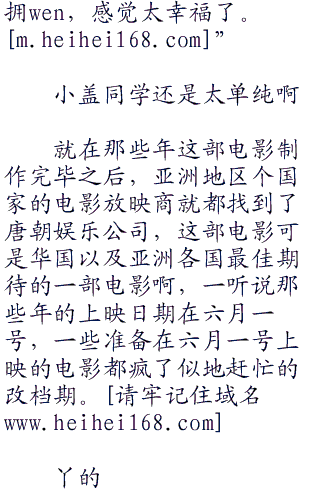 拥wen，感觉太幸福了。
[m.heihei168.com]”
小盖同学还是太单纯啊
就在那些年这部电影制
作完毕之后，亚洲地区个国
家的电影放映商就都找到了
唐朝娱乐公司，这部电影可
是华国以及亚洲各国最佳期
待的一部电影啊，一听说那
些年的上映日期在六月一
号，一些准备在六月一号上
映的电影都疯了似地赶忙的
改档期。[请牢记住域名
www.heihei168.com]
丫的